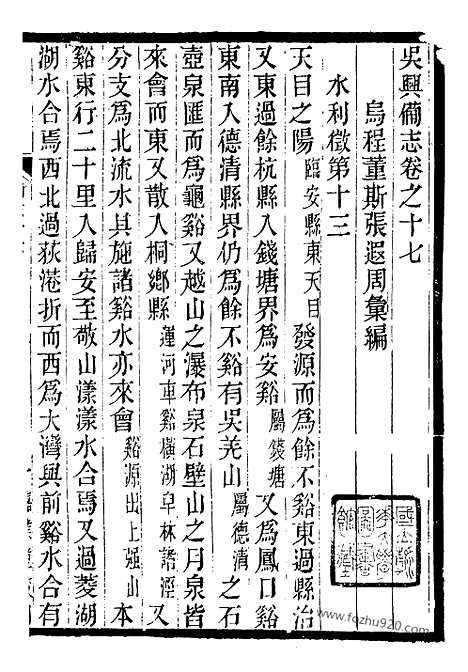 吳興備志卷之十七
烏程董斯張遐周彙編
水利徵第十三
天目之陽臨安縣東天目發源而爲餘不谿東過縣治
又東過餘杭縣入錢塘界爲安谿屬錢塘又爲鳳口谿
東南入德清縣界仍爲餘不谿有吳羌山屬德清之石
壺泉匯而爲龜谿又越山之瀑布泉石壁山之月泉皆
來會而東又散入桐鄉縣運河車谿橫湖皁林諸涇又
分支爲北流水具施諸谿水亦來會谿源出上强山本
谿東行二十里入歸安至敢山漾漾水合焉又過菱湖
湖水合焉西北過荻港折而西爲大灣與前谿水合有
www.fozhu920.com